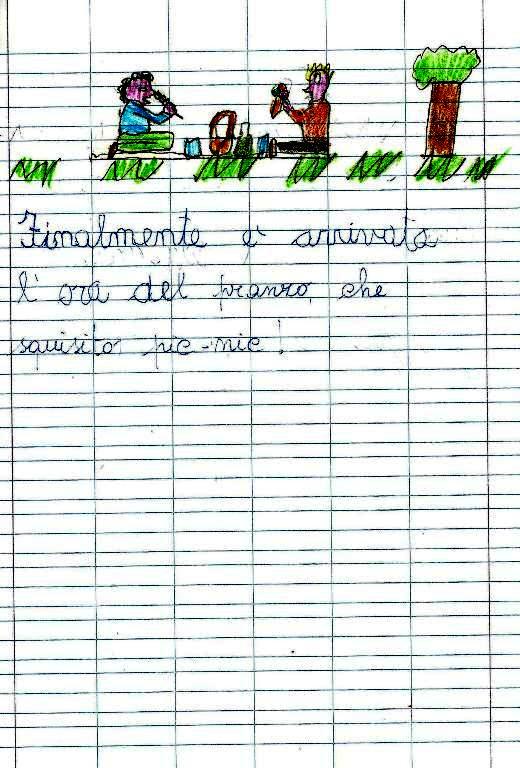 Finalmente è arrivata
l'ora del pranzo, che
squisito pic-nic!